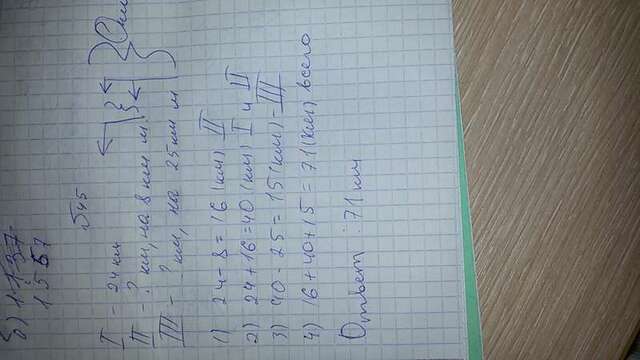 б) 1137
1557
№45
I - 24 км
II - ? км, на 8 км м.
III - ? км, на 25 км м
? км
1) 24 - 8 = 16 (км) II
2) 24 + 16 = 40 (км) I и II
3) 40 - 25 = 15 (км) - III
4) 16 + 40 + 15 = 71 (км) всего
Ответ: 71 км